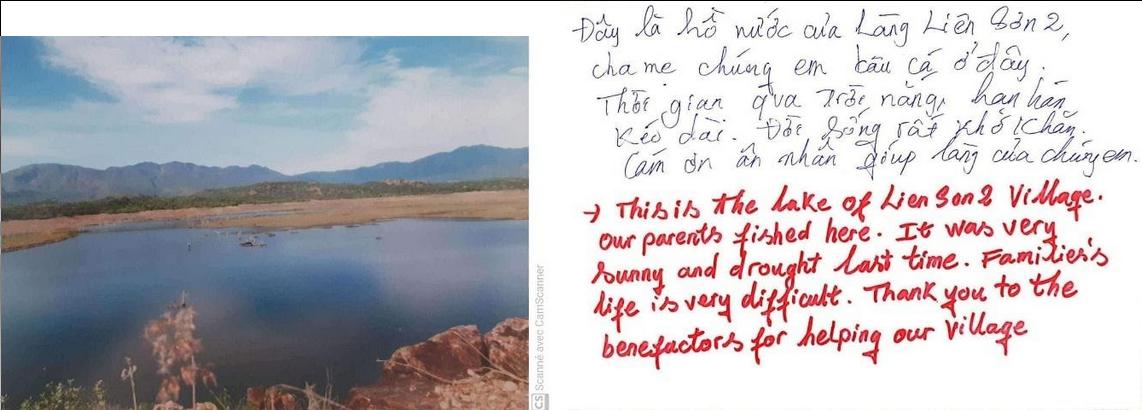 Đây là hồ nước của Làng Liên Sơn 2,
cha mẹ chúng em câu cá ở đây.
Thời gian qua trời nắng, hạn hán
kéo dài. Đời sống rất khó khăn.
Cám ơn ân nhân giúp làng của chúng em.
→ This is the lake of Lien Son 2 Village.
Our parents fished here. It was very
sunny and drought last time. Families's
life is very difficult. Thank you to the
benefactors for helping our Village
CS Scanné avec CamScanner